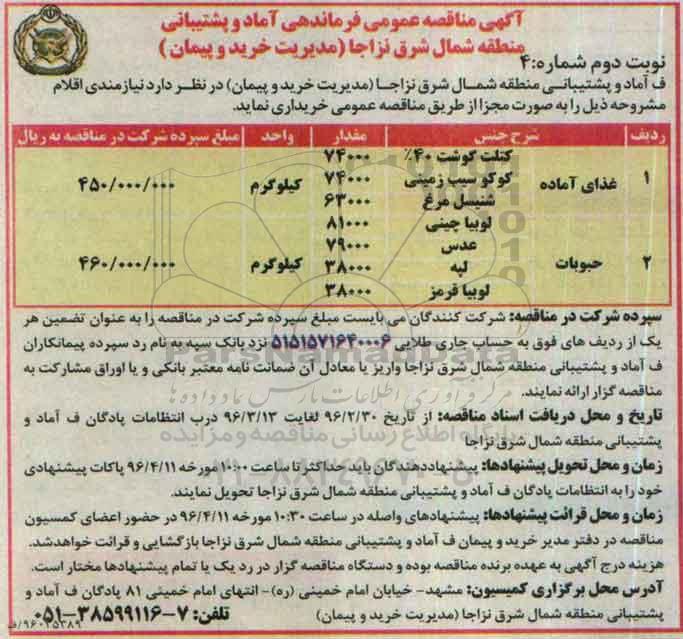 آگهی مناقصه عمومی فرماندهی آماد و پشتیبانی
منطقه شمال شرق نزاجا (مدیریت خرید و پیمان)
نوبت دوم شماره: ۴
ف آماد و پشتیبانی منطقه شمال شرق نزاجا (مدیریت خرید و پیمان) در نظر دارد نیازمندی اقلام
مشروحه ذیل را به صورت مجزا از طریق مناقصه عمومی خریداری نماید.
ردیف شرح جنس مقدار واحد مبلغ سپرده شرکت در مناقصه به ریال
۱ غذای آماده کتلت گوشت ۴۰٪ ۷۴۰۰۰ کیلوگرم ۴۵۰/۰۰۰/۰۰۰
کوکو سیب زمینی ۷۴۰۰۰
شنیسل مرغ ۶۳۰۰۰
۲ حبوبات لوبیا چیتی ۸۱۰۰۰ کیلوگرم ۴۶۰/۰۰۰/۰۰۰
عدس ۷۹۰۰۰
لپه ۳۸۰۰۰
لوبیا قرمز ۳۸۰۰۰
سپرده شرکت در مناقصه: شرکت کنندگان می بایست مبلغ سپرده شرکت در مناقصه را به عنوان تضمین هر
یک از ردیف های فوق به حساب جاری طلایی ۵۱۵۱۵۷۱۶۴۰۰۰۶ نزد بانک سپه به نام رد سپرده پیمانکاران
ف آماد و پشتیبانی منطقه شمال شرق نزاجا واریز یا معادل آن ضمانت نامه معتبر بانکی و یا اوراق مشارکت به
مناقصه گزار ارائه نمایند.
تاریخ و محل دریافت اسناد مناقصه: از تاریخ ۹۶/۲/۳۰ لغایت ۹۶/۳/۱۳ درب انتظامات پادگان ف آماد و
پشتیبانی منطقه شمال شرق نزاجا
زمان و محل تحویل پیشنهادها: پیشنهاددهندگان باید حداکثر تا ساعت ۱۰:۰۰ مورخه ۹۶/۴/۱۱ پاکات پیشنهادی
خود را به انتظامات پادگان ف آماد و پشتیبانی منطقه شمال شرق نزاجا تحویل نمایند.
زمان و محل قرائت پیشنهادها: پیشنهادهای واصله در ساعت ۱۰:۳۰ مورخه ۹۶/۴/۱۱ در حضور اعضای کمسیون
مناقصه در دفتر مدیر خرید و پیمان ف آماد و پشتیبانی منطقه شمال شرق نزاجا بازگشایی و قرائت خواهدشد.
هزینه درج آگهی به عهده برنده مناقصه بوده و دستگاه مناقصه گزار در رد یک یا تمام پیشنهادها مختار است.
آدرس محل برگزاری کمیسیون: مشهد- خیابان امام خمینی (ره)- انتهای امام خمینی ۸۱ پادگان ف آماد و
پشتیبانی منطقه شمال شرق نزاجا (مدیریت خرید و پیمان) تلفن: ۷-۳۸۵۹۹۱۱۶-۰۵۱
۹۶۰۲۵۳۸۹/ف
ParsNamadData
پایگاه اطلاع رسانی مناقصه و مزایده